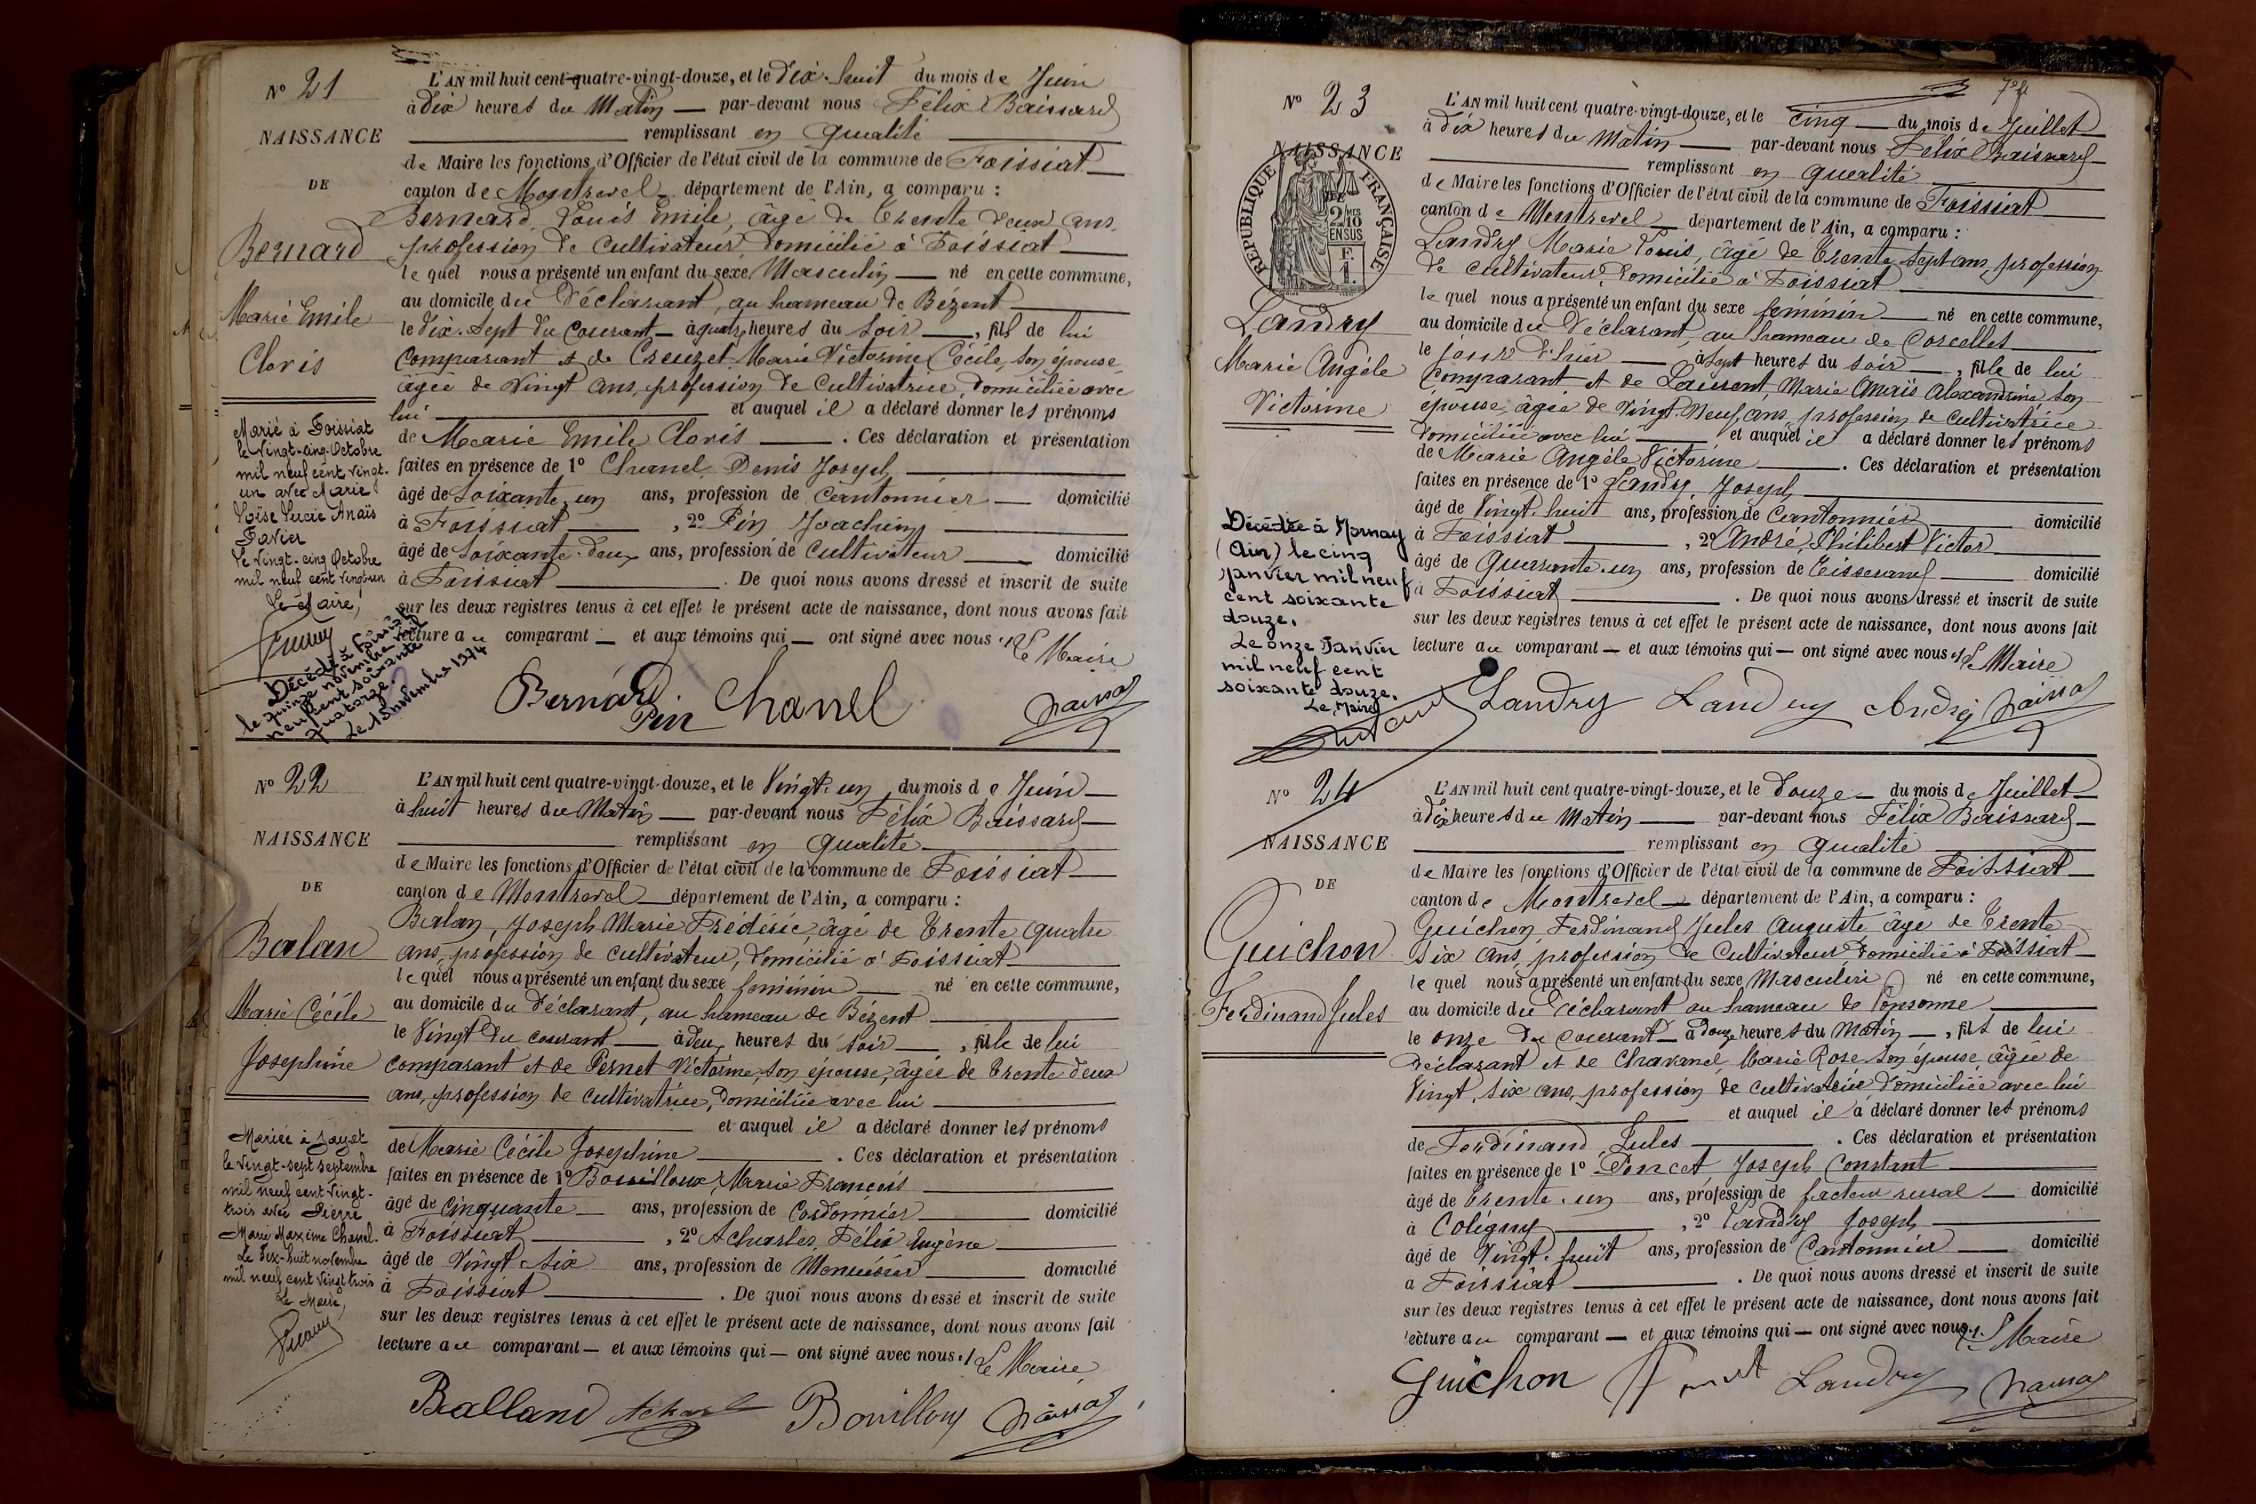 N° 21
L'AN mil huit cent quatre-vingt-douze, et le Dix-huit du mois de Juin
à Dix heures du Matin — par-devant nous Félix Baissard
NAISSANCE
remplissant en qualité
de Maire les fonctions d'Officier de l'état civil de la commune de Foissiat
DE
canton de Montrevel département de l'Ain, a comparu :
Bernard, Louis Emile, âgé de Trente deux ans,
Bernard
profession de Cultivateur, domicilié à Foissiat
le quel nous a présenté un enfant du sexe Masculin — né en cette commune,
au domicile du Déclarant, au hameau de Bézent
Marie Emile
le dix-sept du courant — à quatre heures du soir —, fils de lui
Cloris
Comparant et de Creuzet Marie Victorine Cécile, son épouse,
âgée de Vingt ans, profession de Cultivatrice, domiciliée avec
lui — et auquel il a déclaré donner les prénoms
de Marie Emile Cloris — . Ces déclaration et présentation
faites en présence de 1° Chanel Denis Joseph
âgé de Soixante un ans, profession de Cantonnier — domicilié
à Foissiat —, 2° Pin Joachim
âgé de Soixante-deux ans, profession de Cultivateur — domicilié
à Foissiat — . De quoi nous avons dressé et inscrit de suite
sur les deux registres tenus à cet effet le présent acte de naissance, dont nous avons fait
lecture au comparant — et aux témoins qui — ont signé avec nous./. Le Maire
Marié à Foissiat
le Vingt-cinq Octobre
mil neuf cent vingt-
un avec Marie
Loïse Lucie Anaïs
Favier
Le Vingt-cinq Octobre
mil neuf cent vingt un
Le Maire,
Décédé à
le quinze novembre mil
neuf cent soixante
quatorze.
Le 15 novembre 1974
Bernard
Pin Chanel
N° 22
L'AN mil huit cent quatre-vingt-douze, et le Vingt-un du mois de Juin
à huit heures du Matin — par-devant nous Félix Baissard
NAISSANCE
remplissant en qualité
de Maire les fonctions d'Officier de l'état civil de la commune de Foissiat
DE
canton de Montrevel département de l'Ain, a comparu :
Balan, Joseph Marie Frédéric, âgé de Trente quatre
Balan
ans, profession de cultivateur, domicilié à Foissiat
le quel nous a présenté un enfant du sexe féminin — né en cette commune,
Marie Cécile
au domicile du Déclarant, au hameau de Bézent
le Vingt du courant — à deux heures du soir —, fille de lui
Josephine
comparant et de Pernet Victorine, son épouse, âgée de Trente deux
ans, profession de cultivatrice, domiciliée avec lui
et auquel il a déclaré donner les prénoms
de Marie Cécile Josephine — . Ces déclaration et présentation
faites en présence de 1° Bouilloux, Marie François
âgé de Cinquante ans, profession de Cordonnier — domicilié
à Foissiat —, 2° Acharles, Félix Eugène
âgé de Vingt-six ans, profession de Menuisier — domicilié
à Foissiat — . De quoi nous avons dressé et inscrit de suite
sur les deux registres tenus à cet effet le présent acte de naissance, dont nous avons fait
lecture au comparant — et aux témoins qui — ont signé avec nous./. Le Maire
Mariée à Jayat
le Vingt-sept septembre
mil neuf cent vingt-
trois avec Pierre
Marie Maxime Chanel.
Le Dix-huit novembre
mil neuf cent vingt trois
Le Maire,
Balland Bouilloux
N° 23
L'AN mil huit cent quatre-vingt-douze, et le Cinq — du mois de Juillet
à Dix heures du Matin — par-devant nous Félix Baissard
NAISSANCE
remplissant en qualité
RÉPUBLIQUE FRANÇAISE
DE
2/10 MES
EN SUS
F.
1.
de Maire les fonctions d'Officier de l'état civil de la commune de Foissiat
canton de Montrevel — département de l'Ain, a comparu :
Landry Marie Louis, âgé de Trente sept ans, profession
de cultivateur, domicilié à Foissiat
le quel nous a présenté un enfant du sexe féminin — né en cette commune,
Landry
au domicile du Déclarant, au hameau de Corcelles
le jour d'hier — à sept heures du soir —, fille de lui
Marie Angèle
Comparant et de Laurent, Marie Anaïs Alexandrine, son
Victorine
épouse, âgée de Vingt-Neuf ans, profession de cultivatrice
domiciliée avec lui — et auquel il a déclaré donner les prénoms
de Marie Angèle Victorine — . Ces déclaration et présentation
faites en présence de 1° Landry, Joseph
âgé de Vingt-huit ans, profession de Cantonnier — domicilié
à Foissiat —, 2° André, Philibert Victor
âgé de Quarante-un ans, profession de Tisserand — domicilié
à Foissiat — . De quoi nous avons dressé et inscrit de suite
sur les deux registres tenus à cet effet le présent acte de naissance, dont nous avons fait
lecture au comparant — et aux témoins qui — ont signé avec nous./. Le Maire
Décédée à Mornay
(Ain) le cinq
janvier mil neuf
cent soixante
douze.
Le onze Janvier
mil neuf cent
soixante douze.
Le Maire
Landry Landry André
N° 24
L'AN mil huit cent quatre-vingt-douze, et le Douze — du mois de Juillet
à Dix heures du Matin — par-devant nous Félix Baissard
NAISSANCE
remplissant en qualité
de Maire les fonctions d'Officier de l'état civil de la commune de Foissiat
DE
canton de Montrevel — département de l'Ain, a comparu :
Guichon Ferdinand Jules Auguste âgé de Trente
Guichon
six ans, profession de Cultivateur domicilié à Foissiat
le quel nous a présenté un enfant du sexe Masculin né en cette commune,
Ferdinand Jules
au domicile du Déclarant au hameau de Ponsonne
le onze du courant — à Douze heures du Matin —, fils de lui
Déclarant et de Chavanel, Marie Rose son épouse, âgée de
Vingt, six ans, profession de cultivatrice domiciliée avec lui
et auquel il a déclaré donner les prénoms
de Ferdinand, Jules — . Ces déclaration et présentation
faites en présence de 1° Poncet Joseph Constant
âgé de Trente-un ans, profession de facteur rural — domicilié
à Coligny —, 2° Landry Joseph
âgé de Vingt-huit ans, profession de Cantonnier — domicilié
à Foissiat — . De quoi nous avons dressé et inscrit de suite
sur les deux registres tenus à cet effet le présent acte de naissance, dont nous avons fait
lecture au comparant — et aux témoins qui — ont signé avec nous./. Le Maire
Guichon Landry